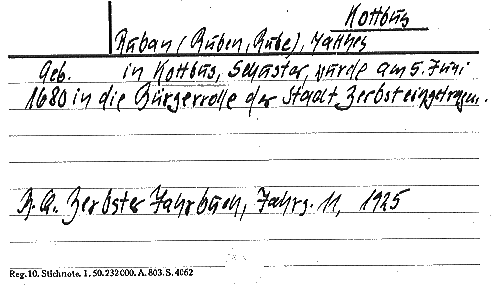 Kottbus
Ruban (Ruben, Rube), Matthes
Geb. in Kottbus, Schuster, wurde am 5. Juni
1680 in die Bürgerrolle der Stadt Zerbst eingetragen.
A. A. Zerbster Jahrbuch, Jahrg. 11, 1925
Reg. 10. Stichnote. 1. 50. 232 000. A. 803. S. 4062